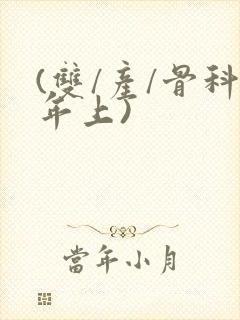 (雙/産/骨科
年上)
當年小月